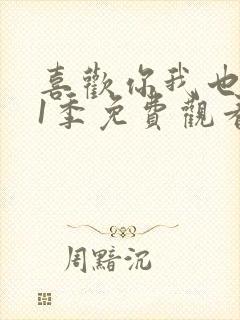 喜歡你我也
1季免費觀看
周黯沉